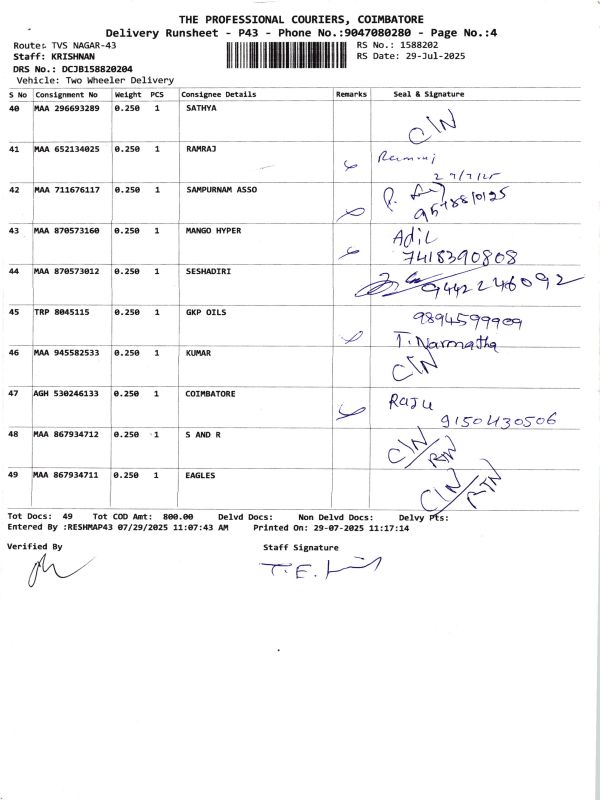 THE PROFESSIONAL COURIERS, COIMBATORE
Delivery Runsheet - P43 - Phone No.:9047080280 - Page No.:4
Route: TVS NAGAR-43
RS No.: 1588202
Staff: KRISHNAN
RS Date: 29-Jul-2025
DRS No.: DCJB158820204
Vehicle: Two Wheeler Delivery
S No Consignment No Weight PCS Consignee Details Remarks Seal & Signature
40 MAA 296693289 0.250 1 SATHYA C/N
41 MAA 652134025 0.250 1 RAMRAJ Ramraj
42 MAA 711676117 0.250 1 SAMPURNAM ASSO
43 MAA 870573160 0.250 1 MANGO HYPER Adil
7418390808
44 MAA 870573012 0.250 1 SESHADIRI 9442246092
45 TRP 8045115 0.250 1 GKP OILS 9894599909
T. Narmatha
46 MAA 945582533 0.250 1 KUMAR C/N
47 AGH 530246133 0.250 1 COIMBATORE Raju
9150430506
48 MAA 867934712 0.250 1 S AND R C/N/RTN
49 MAA 867934711 0.250 1 EAGLES C/N/RTN
Tot Docs: 49 Tot COD Amt: 800.00 Delvd Docs: Non Delvd Docs: Delvy Pts:
Entered By :RESHMAP43 07/29/2025 11:07:43 AM Printed On: 29-07-2025 11:17:14
Verified By Staff Signature